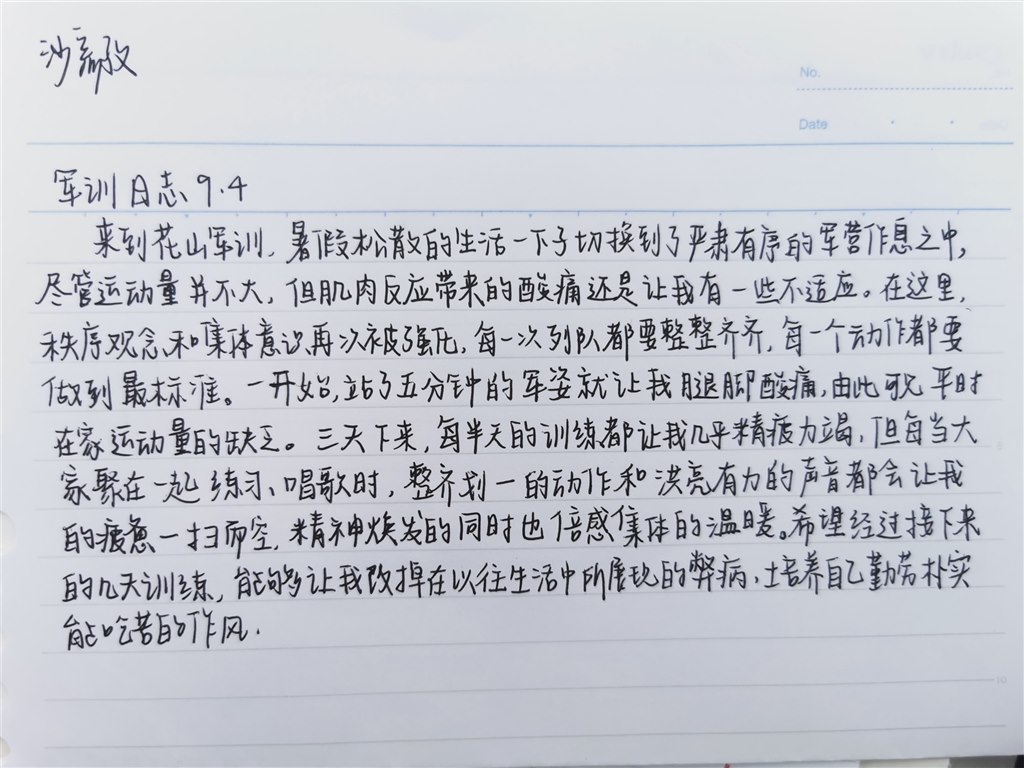 沙
No.
Date
军训日志 9.4
来到花山军训，暑假松散的生活一下子切换到了严肃有序的军营作息之中，
尽管运动量并不大，但肌肉反应带来的酸痛还是让我有一些不适应。在这里，
秩序观念和集体意识再次被强化，每一次列队都要整整齐齐，每一个动作都要
做到最标准。一开始，站了五分钟的军姿就让我腿脚酸痛，由此可见平时
在家运动量的缺乏。三天下来，每半天的训练都让我几乎精疲力竭，但每当大
家聚在一起练习、唱歌时，整齐划一的动作和洪亮有力的声音都会让我
的疲惫一扫而空，精神焕发的同时也倍感集体的温暖。希望经过接下来
的几天训练，能够让我改掉在以往生活中所展现的弊病，培养自己勤劳朴实
能吃苦的作风.
10